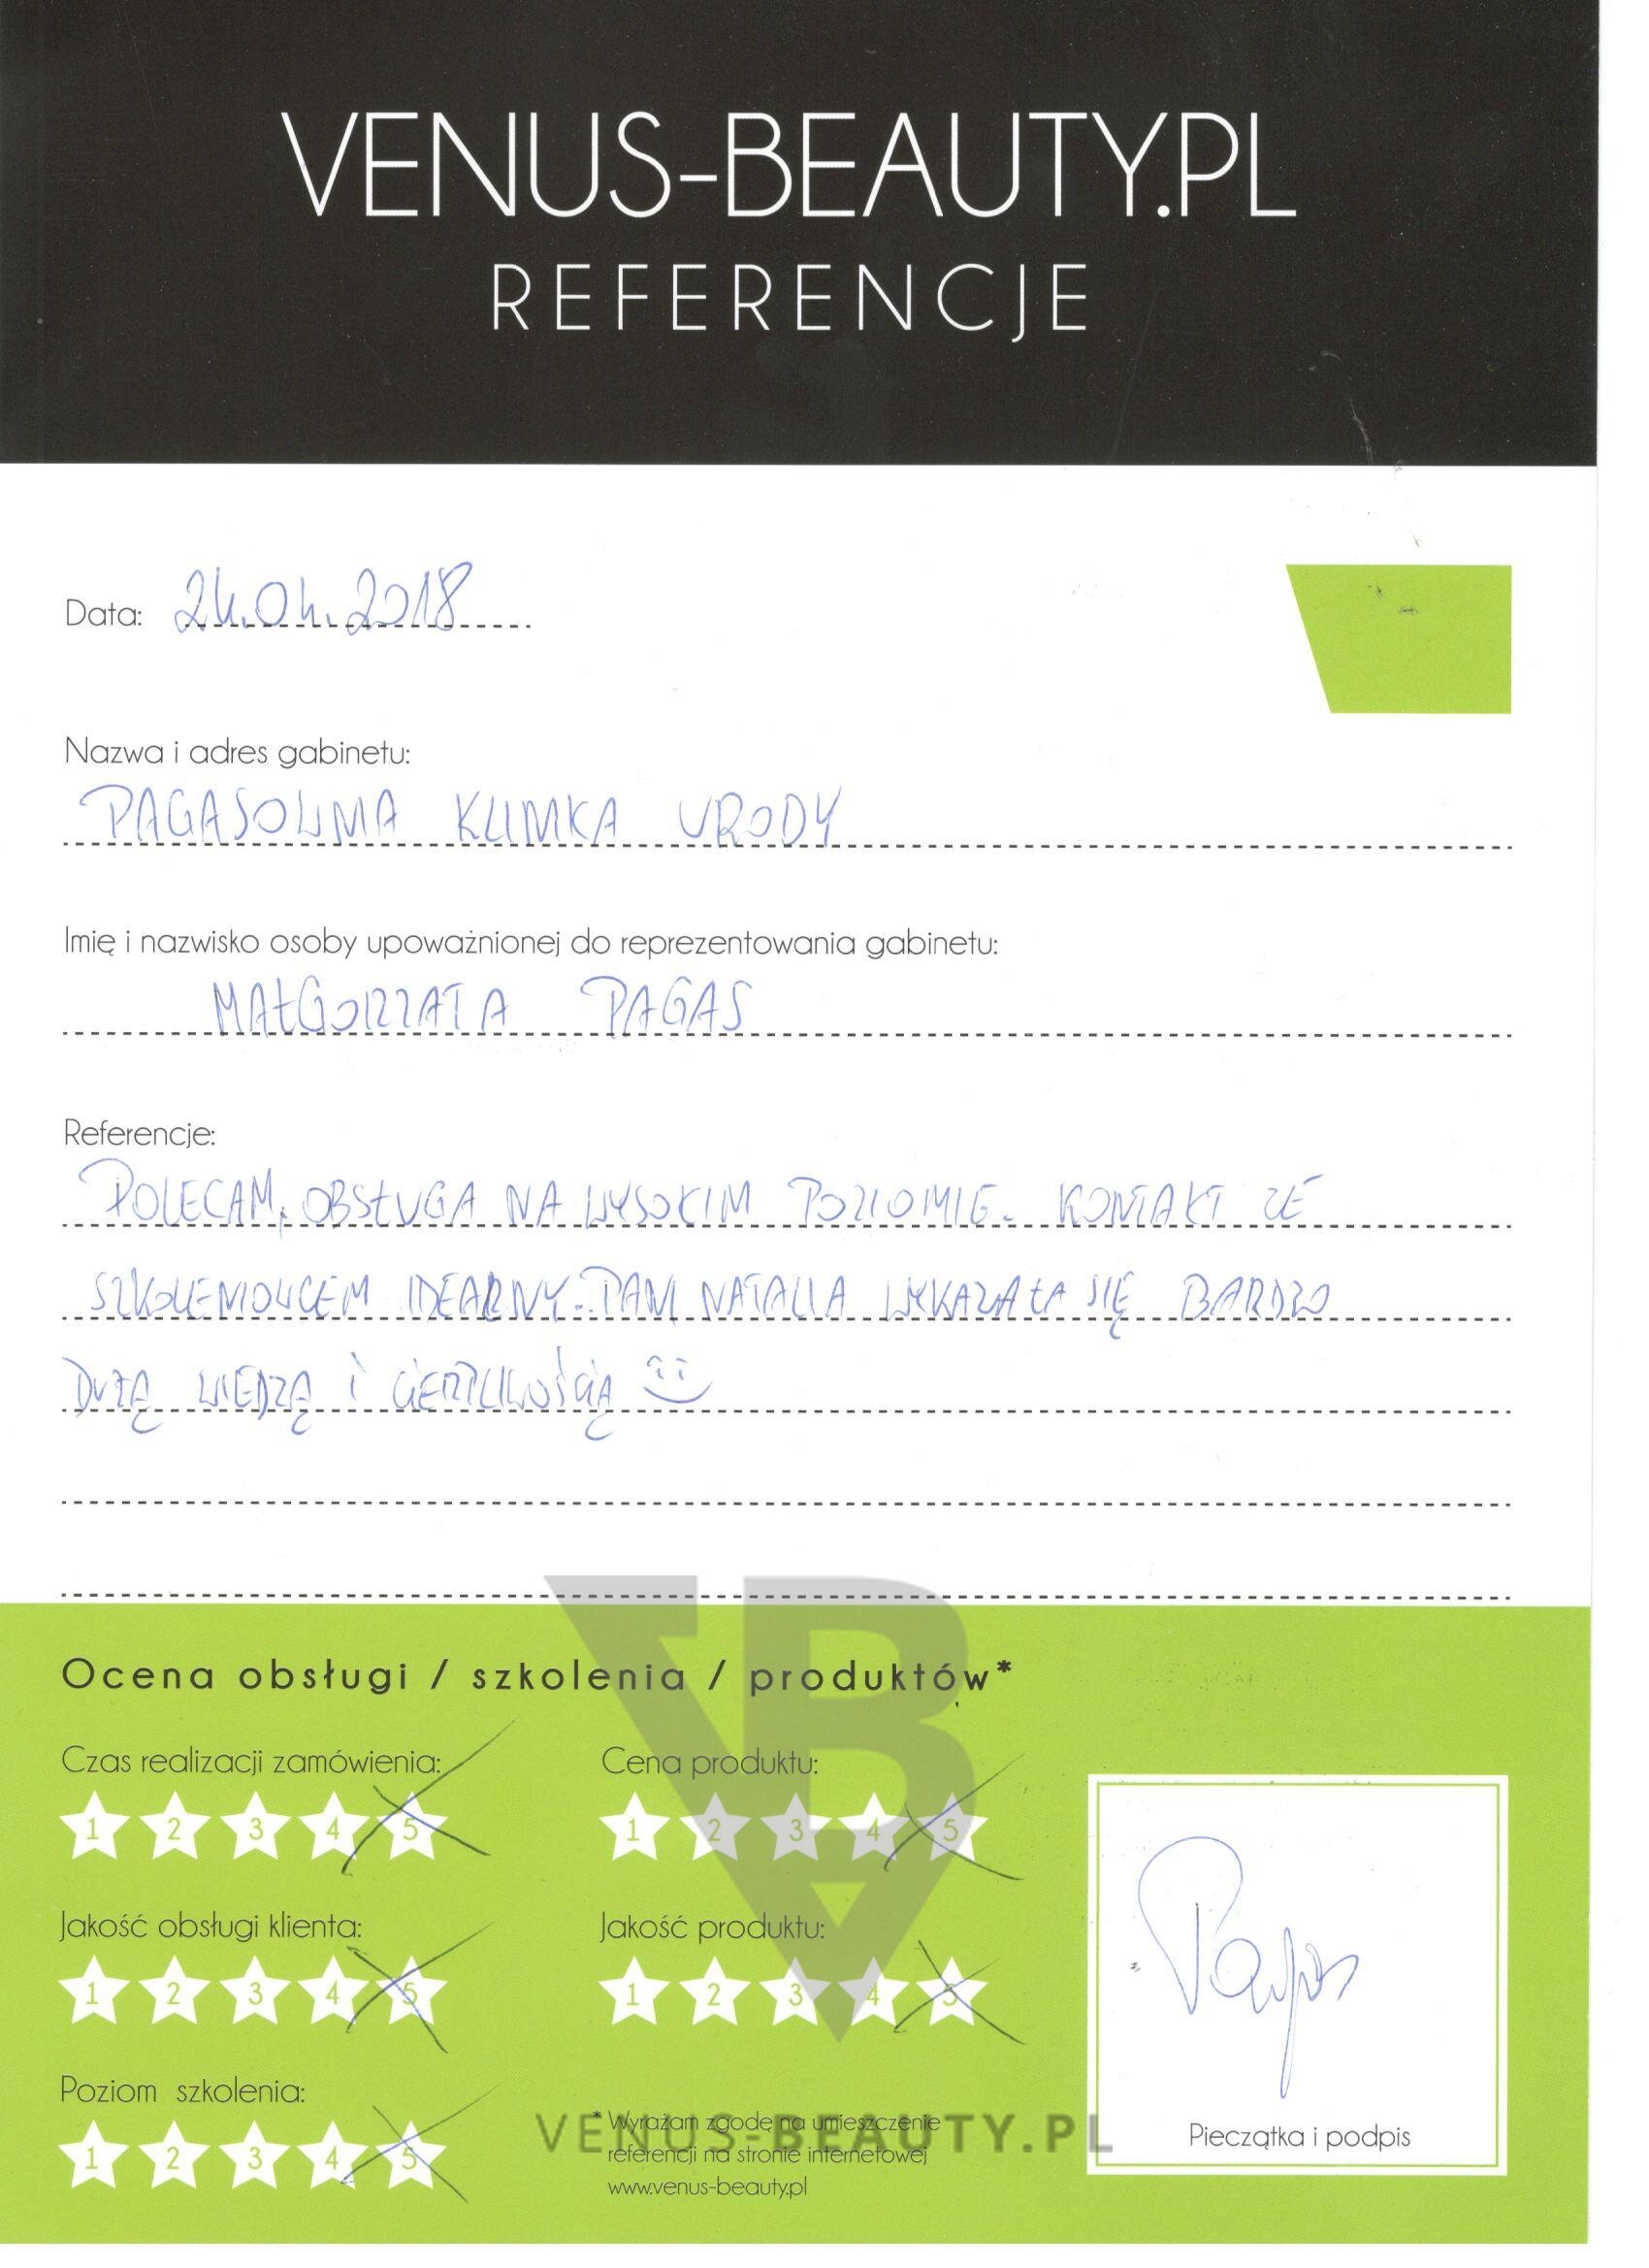 VENUS-BEAUTY.PL
REFERENCJE
Data: 24.04.2018
Nazwa i adres gabinetu:
PAGASOLINIA KLINIKA URODY
Imię i nazwisko osoby upoważnionej do reprezentowania gabinetu:
MAŁGORZATA PAGAS
Referencje:
POLECAM, OBSŁUGA NA WYSOKIM POZIOMIE. KONTAKT ZE
SZKOLENIOWCEM IDEALNY. PANI NATALIA WYKAZAŁA SIĘ BARDZO
DUŻĄ WIEDZĄ I CIERPLIWOŚCIĄ
Ocena obsługi / szkolenia / produktów*
Czas realizacji zamówienia:
1 2 3 4 5
Cena produktu:
1 2 3 4 5
Jakość obsługi klienta:
1 2 3 4 5
Jakość produktu:
1 2 3 4 5
Poziom szkolenia:
1 2 3 4 5
* Wyrażam zgodę na umieszczenie
referencji na stronie internetowej
www.venus-beauty.pl
VENUS-BEAUTY.PL
Pagas
Pieczątka i podpis